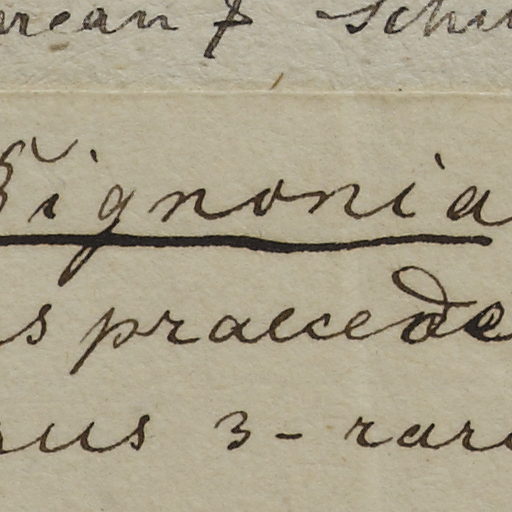 rean & Schu
Bignonia
s praecede
rus 3- raro